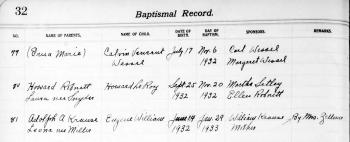 32
Baptismal Record.
NO. NAME OF PARENTS, NAME OF CHILD. DATE OF BIRTH DATE OF BAPTISM SPONSORS. REMARKS.
79 (Maria) Calvin Wessel July 17 Nov. 6 1932 Carl Wessel
Margaret Wessel
80 Howard Robnett Howard LeRoy Sept 25 1932 Nov. 20 1932 Martha
Laura nee Snyder Ellen Robnett
81 Adolph A Krause Eugene William June 14 1932 Jan. 29 1933 William Krause By Mrs.
Leona nee Miller Mother